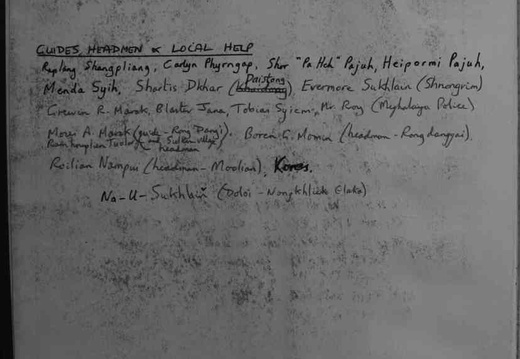 GUIDES, HEADMEN & LOCAL HELP
Raplang Shangpliang, Carlyn Phyrngap, Shor "Pa Heh" Pajuh, Heipormi Pajuh,
Menda Syih, Shartis Dkhar (Paistong), Evermore Sukhlain (Shnongrim)
Grewin R. Marak, Blaster Jana, Tobias Syiem, Mr. Roy (Meghalaya Police)
Moses A. Marak (guide - Rong Dangi), Boren G. Momin (headman - Rongdanggai),
headman
Roilian Nampui (headman - Moolian),
Na-U-Sukhlain (Doloi - Nongkhlieh Elaka)